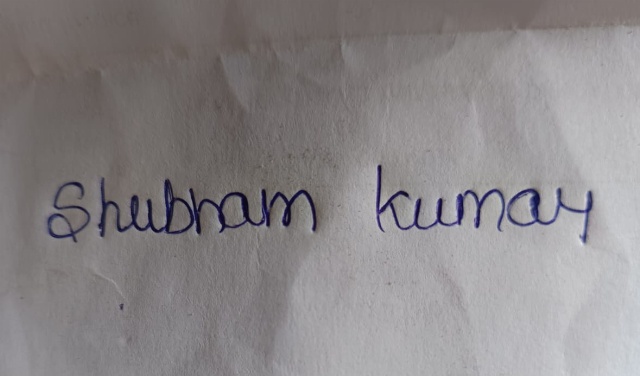 Shubham kumar